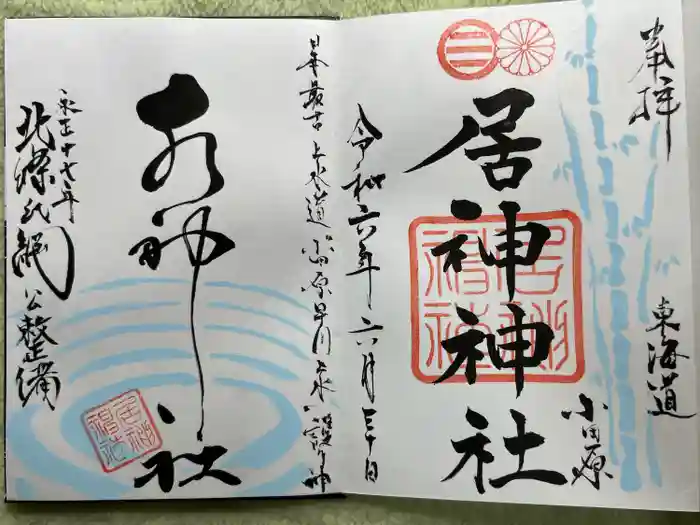 奉拝
東海道
小田原
居神神社
居神神社
令和六年六月三十日
日本最古上水道小田原早川上水守護神
水神社
永正十七年
北條氏綱公整備
居神神社